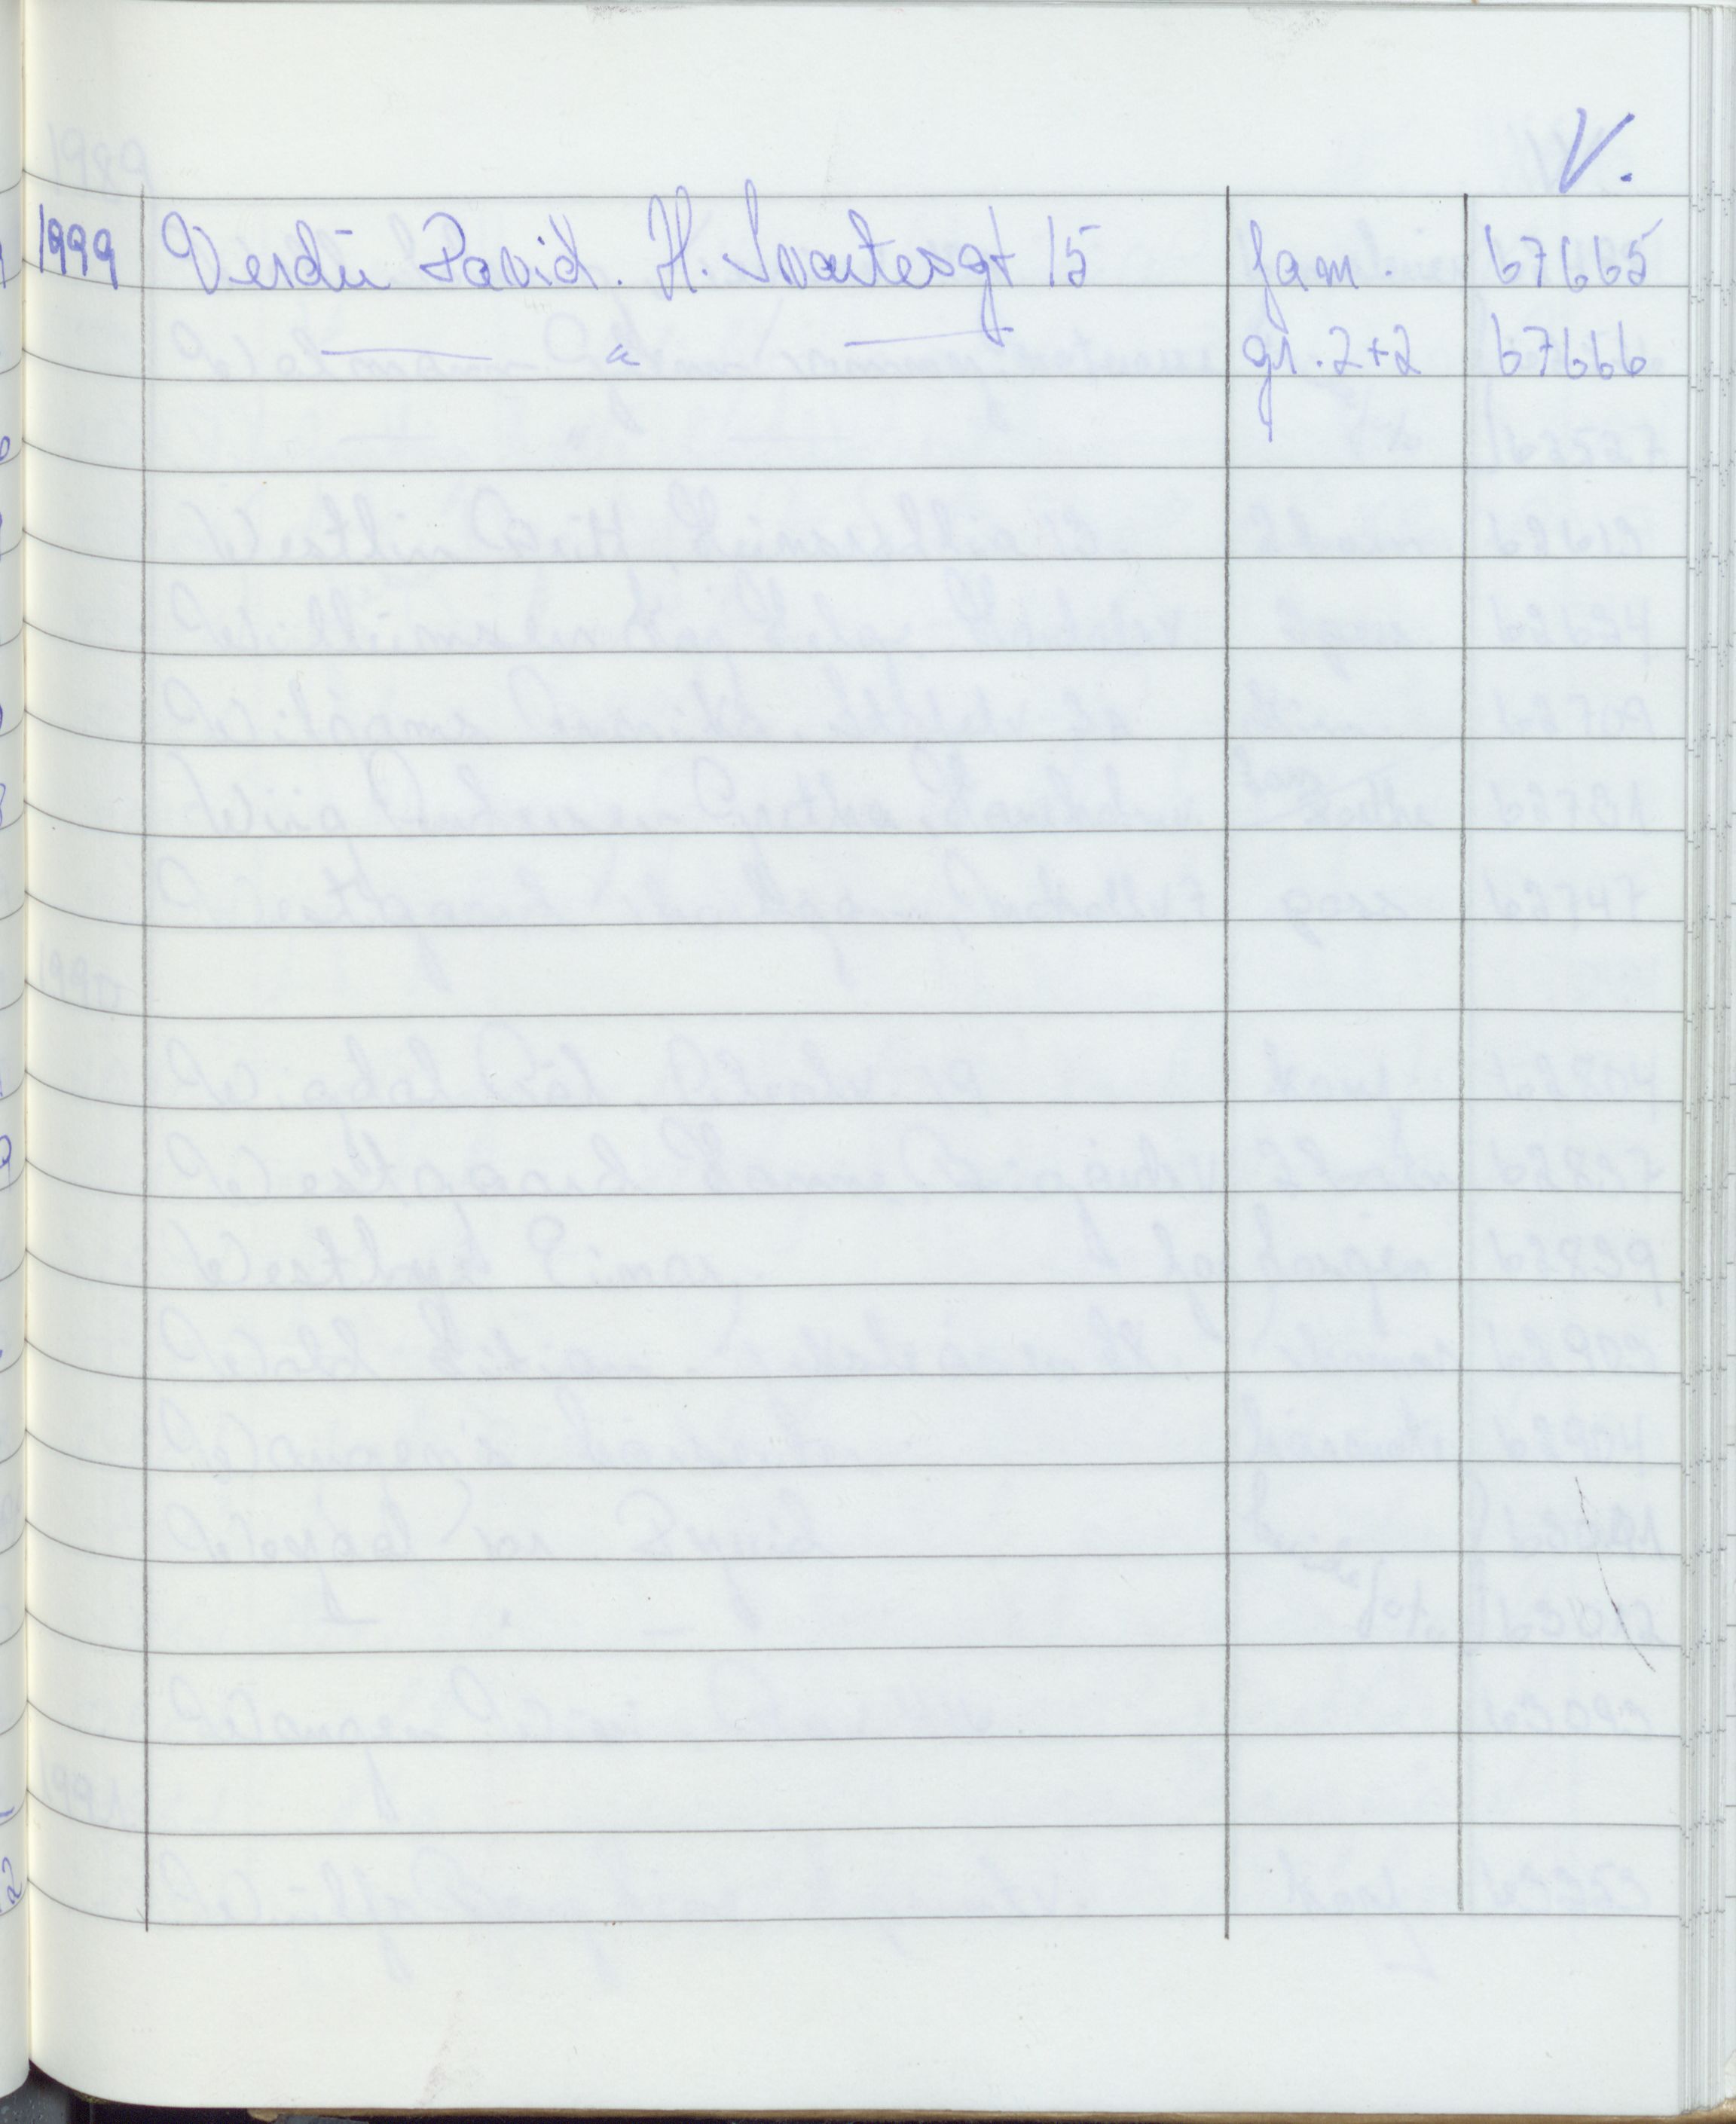 V.
1999 Verdü David. H. Svartesgt 15 fam. 67665
— " — gr. 2+2 67666